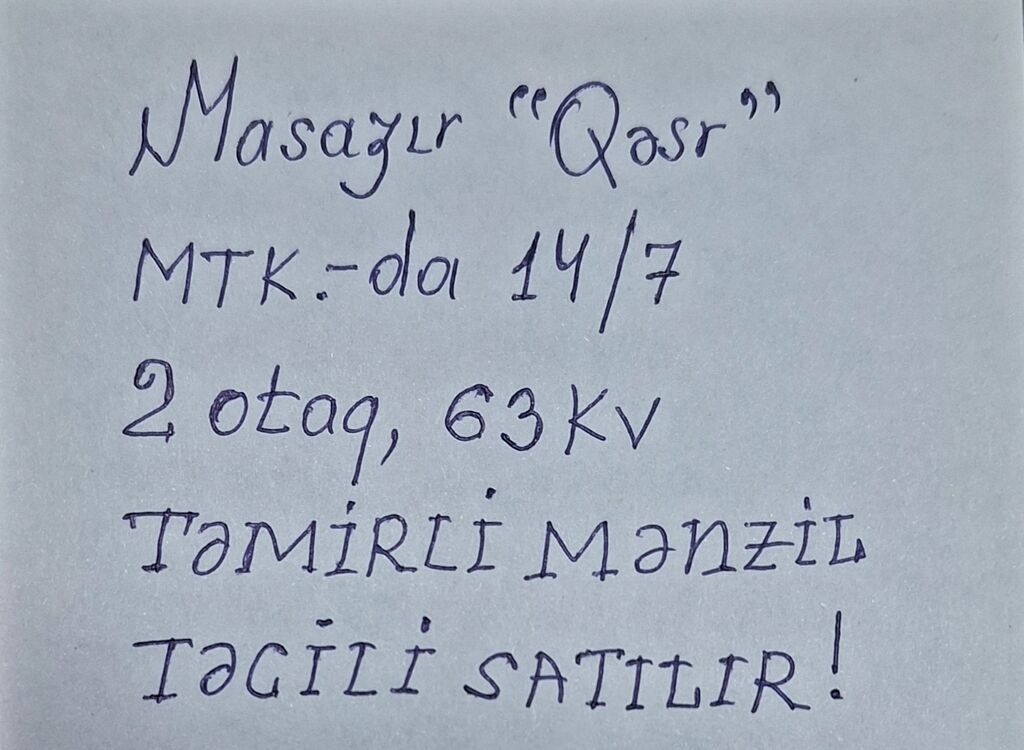 Masazır "Qəsr"
MTK.-da 14/7
2 otaq, 63 Kv
TƏMİRLİ MƏNZİL
TƏCİLİ SATILIR!